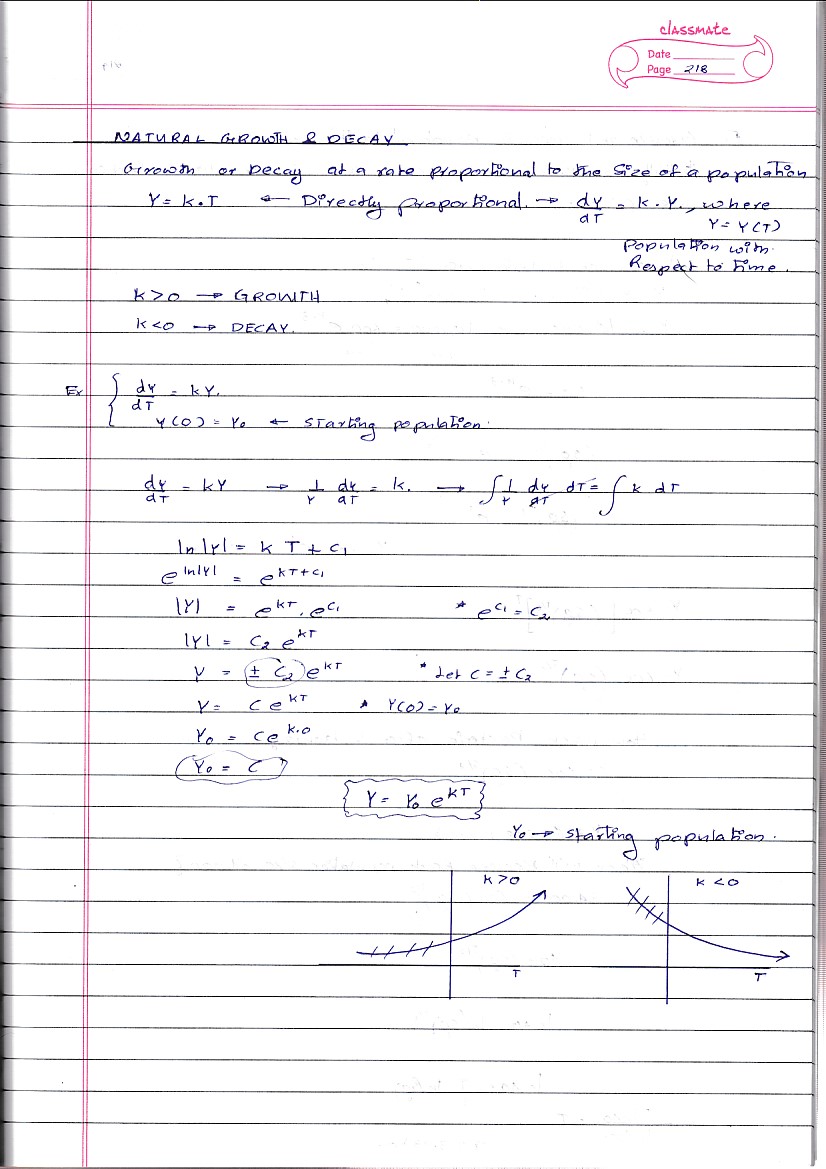 classmate
Date
Page 218
NATURAL GROWTH & DECAY
Growth or Decay at a rate proportional to the size of a population
Y = k.T ← Directly proportional → dY/dT = k.Y, where
Y = Y(T)
Population with
Respect to time.
k>0 → GROWTH
k<0 → DECAY.
Ex { dY/dT = kY.
Y(0) = Y₀ ← Starting population.
dY/dT = kY → 1/Y dY/dT = k. → ∫ 1/Y dY/dT dT = ∫ k dT
ln|Y| = k T + c₁
e^ln|Y| = e^kT+c₁
|Y| = e^kT . e^c₁ * e^c₁ = c₂
|Y| = c₂ e^kT
Y = ± c₂ e^kT * Let c = ± c₂
Y = c e^kT * Y(0) = Y₀
Y₀ = c e^k.0
Y₀ = c
{ Y = Y₀ e^kT }
Y₀ → Starting population.
k>0 k<0
T T